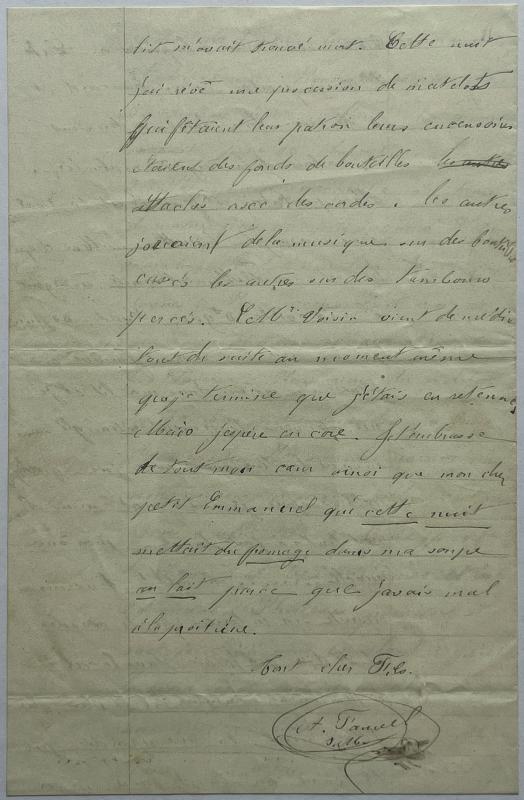 lit m'avait trouvé mort. Cette nuit
j'ai rêvé une procession de matelots
qui fêtaient leur patron leurs encensoirs
étaient des fonds de bouteilles les autres
attachés avec des cordes. les autres
jouaient de la musique sur des bouteilles
cassés les autres sur des tambours
percés. Voisin vient de me dire
tout de suite au moment même
que je termine que j'étais en retenue
Mais j'espère encore. Je t'embrasse
de tout mon cœur ainsi que mon cher
petit Emmanuel qui cette nuit
mettait du fromage dans ma soupe
au lait parce que j'avais mal
à la poitrine.
Ton cher Fils.
A.